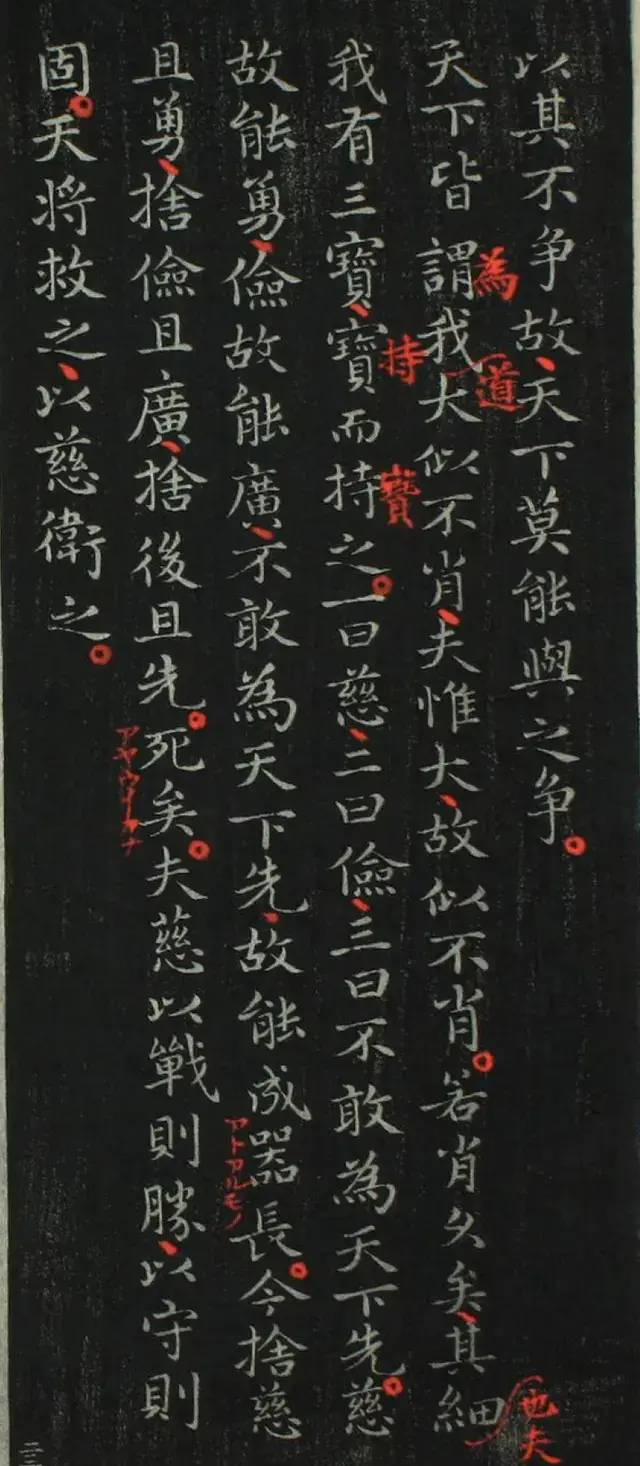 以其不争故、天下莫能與之争。
天下皆謂我大似不肖、夫惟大、故似不肖。若肖久矣、其細
為
道
也夫
我有三寶、寶而持之。一曰慈、二曰儉、三曰不敢為天下先。慈
持
寶
故能勇、儉故能廣、不敢為天下先、故能成器長。今捨慈
アトアルモノ
且勇、捨儉且廣、捨後且先。死矣。夫慈以戰則勝、以守則
固。天將救之、以慈衛之。